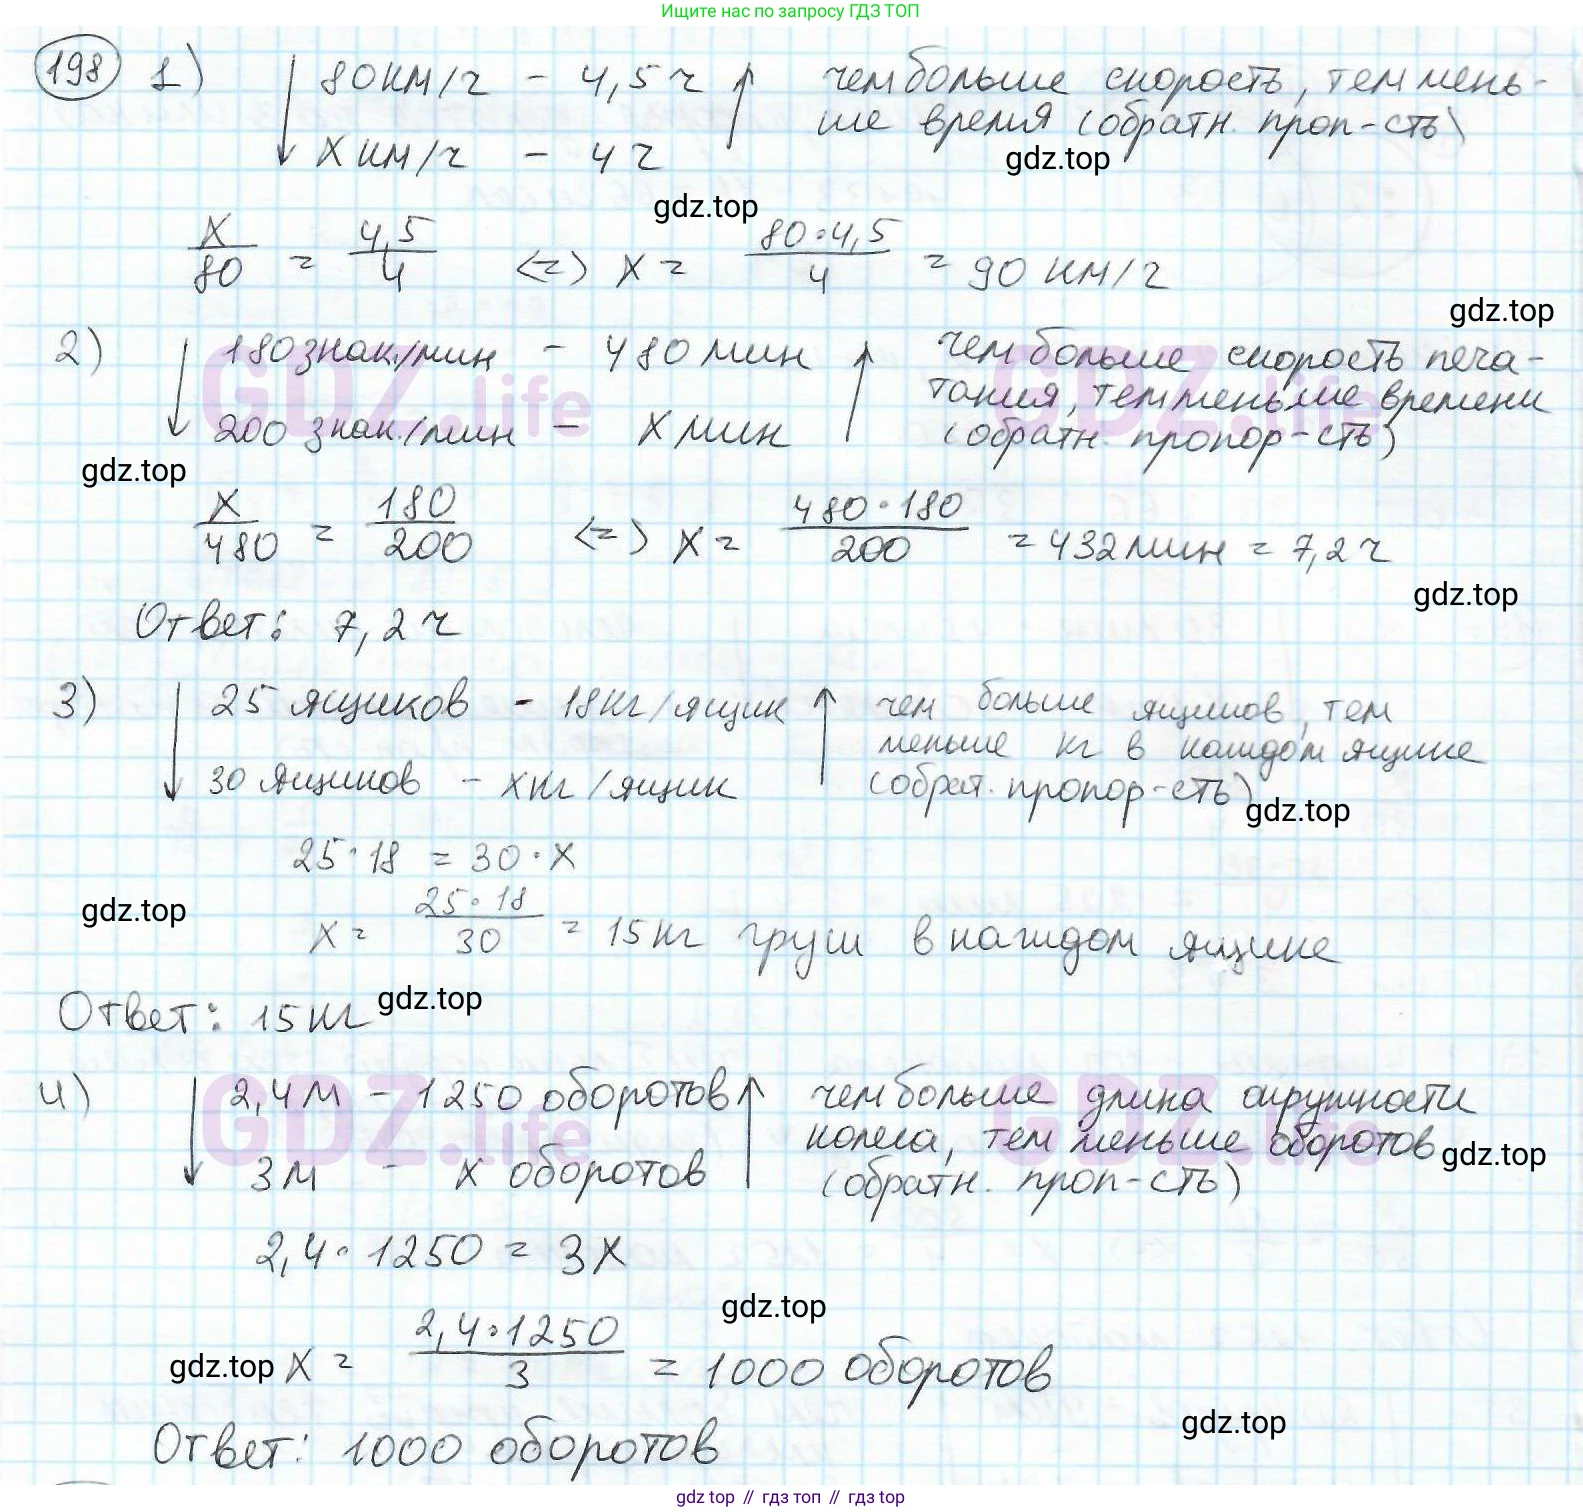 Ищите нас по запросу ГДЗ ТОП
198 1) 80 км/ч - 4,5 ч чем больше скорость, тем мень-
ше время (обратн. проп-сть)
х км/ч - 4 ч
gdz.top
gdz.top
х/80 = 4,5/4 <=> х = 80·4,5/4 = 90 км/ч
gdz.top
2) 180 знак./мин - 480 мин чем больше скорость печа-
тания, тем меньше времени
200 знак./мин - х мин (обратн. пропор-сть)
GDZ.life GDZ.life
gdz.top
х/480 = 180/200 <=> х = 480·180/200 = 432 мин = 7,2 ч
gdz.top
Ответ: 7,2 ч
3) 25 ящиков - 18 кг/ящик чем больше ящиков, тем
меньше кг в каждом ящике
30 ящиков - х кг/ящик (обрат. пропор-сть)
gdz.top
25·18 = 30·х
gdz.top
х = 25·18/30 = 15 кг груш в каждом ящике
gdz.top
Ответ: 15 кг
4) 2,4 м - 1250 оборотов чем больше длина окружности
колеса, тем меньше оборотов
gdz.top
3 м - х оборотов (обратн. проп-сть)
GDZ.life GDZ.life
2,4·1250 = 3х
gdz.top
gdz.top х = 2,4·1250/3 = 1000 оборотов
gdz.top
Ответ: 1000 оборотов
gdz top // гдз топ // gdz top